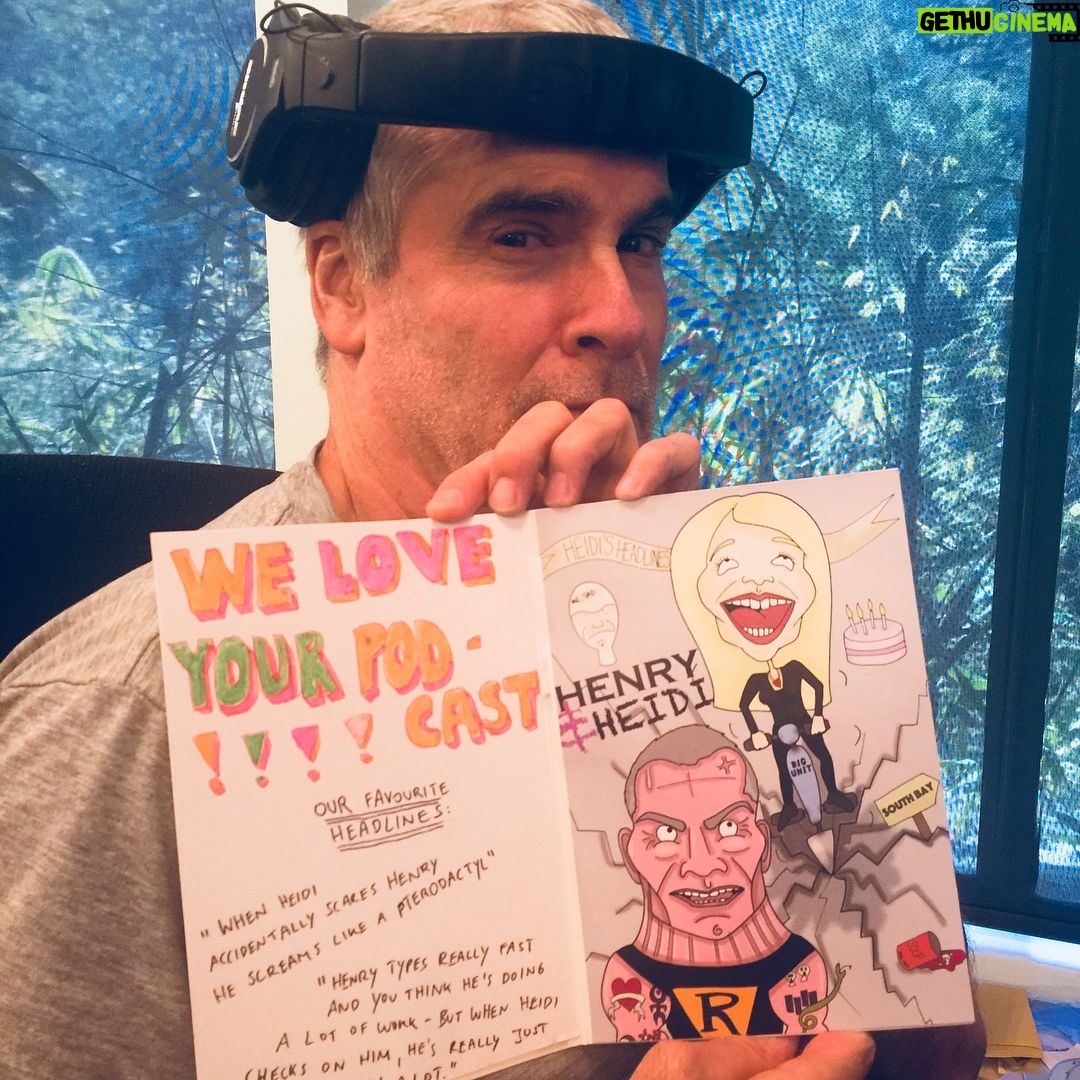 GETHUCINEMA
WE LOVE
YOUR POD-
CAST
! ! ! !
OUR FAVOURITE
HEADLINES:
"WHEN HEIDI
ACCIDENTALLY SCARES HENRY
HE SCREAMS LIKE A PTERODACTYL"
"HENRY TYPES REALLY FAST
AND YOU THINK HE'S DOING
A LOT OF WORK - BUT WHEN HEIDI
CHECKS ON HIM, HE'S REALLY JUST
A LOT."
HEIDI'S HEADLINES
HENRY
& HEIDI
BIG
UNIT
SOUTH BAY
SOUP
R